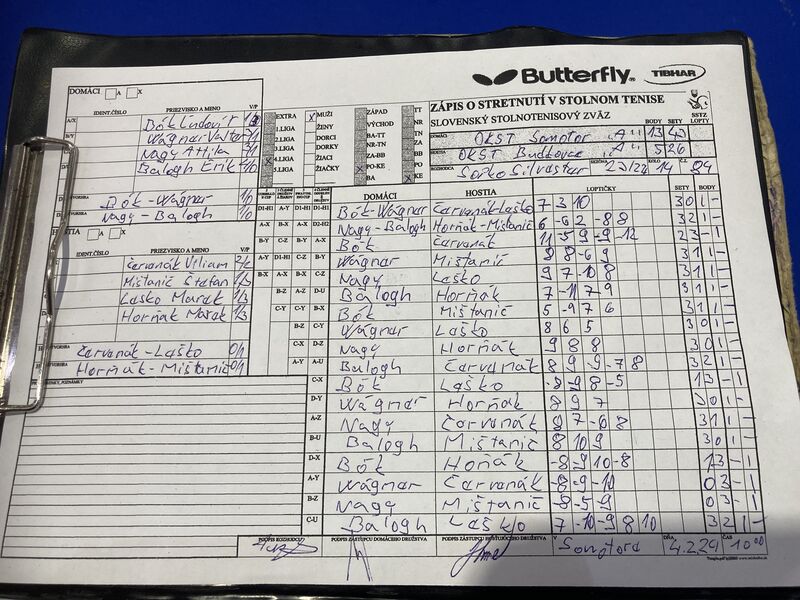 Butterfly
TIBHAR
DOMÁCI A X
IDENT.ČÍSLO PRIEZVISKO A MENO V/P
A/X Bók Ľudovít
B/Y Wágner Valter
Nagy Attila
Balogh Erik
Bók - Wágner 1/0
Nagy - Balogh 1/0
HOSTIA A X
IDENT.ČÍSLO PRIEZVISKO A MENO V/P
Červanák Viliam 2/2
Mištanič Štefan 1/3
Laško Marek 1/3
Horňák Marek 1/3
Červanák - Laško 0/1
Horňák - Mištanič 0/1
EXTRA X MUŽI ZÁPAD TT
1.LIGA ŽENY VÝCHOD NR
2.LIGA DORCI BA-TT TN
3.LIGA DORKY NR-TN ZA
X 4.LIGA ŽIACI ZA-BB BB
5.LIGA ŽIAČKY X PO-KE PO
BA X KE
ZÁPIS O STRETNUTÍ V STOLNOM TENISE
SLOVENSKÝ STOLNOTENISOVÝ ZVÄZ
BODY SETY LOPTY
SSTZ
DOMÁCI OKST Somotor "A" 13 43
HOSTIA OKST Budkovce 5 26
ROZHODCA Sopko Silvester SEZÓNA 23/24 KOLO 14 Č. 84
DOMÁCI HOSTIA LOPTIČKY SETY BODY
D1-H1 A-Y D1-H1 D2-H1 Bók-Wágner Červanák-Laško 7 3 10 3 0 1 -
A-X B-X A-X D2-H2 Nagy-Balogh Horňák-Mištanič 6 -6 2 -8 8 3 2 1 -
B-Y C-Z B-Y A-X Bók Červanák 11 -5 9 -9 -12 2 3 - 1
A-Y D1-H1 C-Z B-Y Wágner Mištanič 8 8 -6 9 3 1 1 -
B-X A-X B-X C-Z Nagy Laško 9 7 -10 8 3 1 1 -
B-Z A-Z D-U Balogh Horňák 7 -11 7 9 3 1 1 -
C-Y C-Y B-X Bók Mištanič 5 -9 7 6 3 1 1 -
B-Z C-Y Wágner Laško 8 6 5 3 0 1 -
C-X D-Z Nagy Horňák 9 8 8 3 0 1 -
A-Y A-U Balogh Červanák 8 9 9 -7 8 3 2 1 -
C-X Bók Laško -8 9 -8 -5 1 3 - 1
D-Y Wágner Horňák 8 9 7 3 0 1 -
A-Z Nagy Červanák 9 7 -6 8 3 1 1 -
B-U Balogh Mištanič 8 10 9 3 0 1 -
D-X Bók Hoňák -8 -9 10 -8 1 3 - 1
A-Y Wágner Červanák -8 -9 -10 0 3 - 1
B-Z Nagy Mištanič -8 -5 -9 0 3 - 1
C-U Balogh Laško 7 -10 -9 8 10 3 2 1 -
PODPIS ROZHODCU PODPIS ZÁSTUPCU DOMÁCEHO DRUŽSTVA PODPIS ZÁSTUPCU HOSŤUJÚCEHO DRUŽSTVA V Somotore DŇA 4.2.24 ČAS 10 00